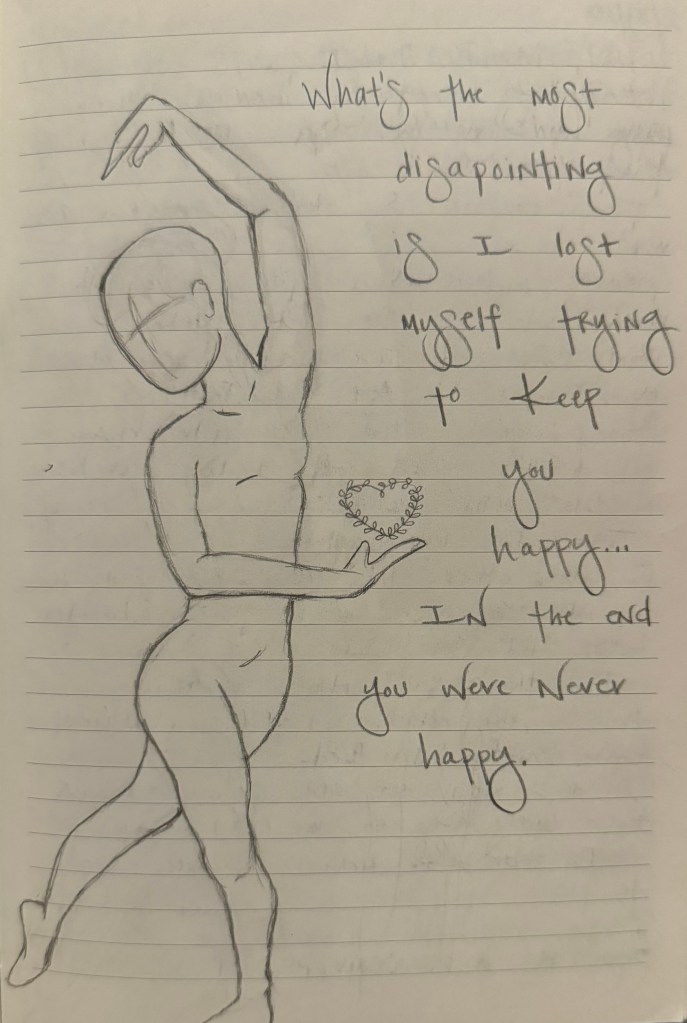 What's the most
disapointing
is I lost
myself trying
to keep
you
happy...
IN the end
you were Never
happy.